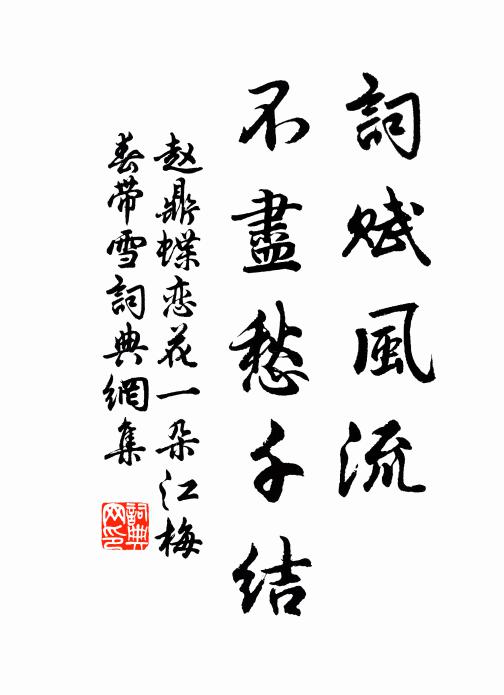 詞賦風流
不盡愁千结
赵鼎蝶恋花一朵江梅
春带雪詞典網集
詞典
网印